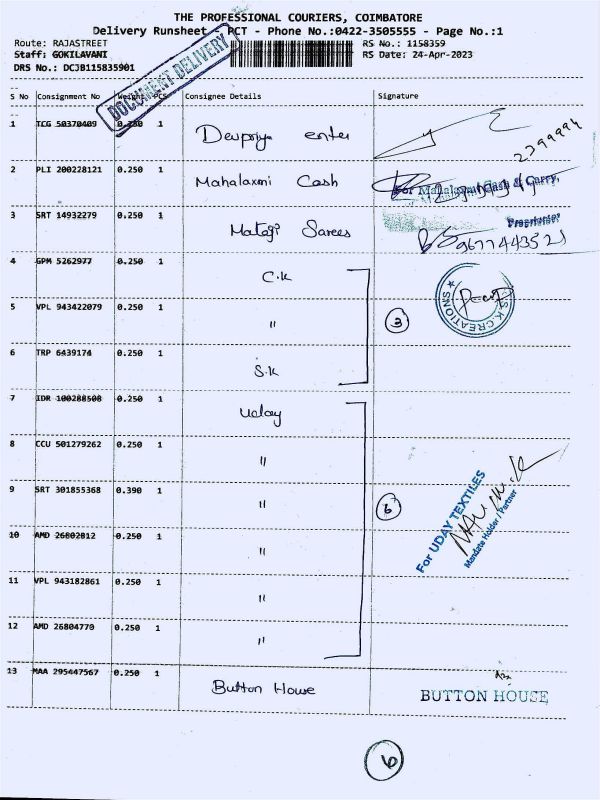 THE PROFESSIONAL COURIERS, COIMBATORE
Delivery Runsheet - PCT - Phone No.:0422-3505555 - Page No.:1
Route: RAJASTREET RS No.: 1158359
Staff: GOKILAVANI RS Date: 24-Apr-2023
DRS No.: DCJB115835901
DOCUMENT DELIVERY
S No Consignment No Weight PCS Consignee Details Signature
1 TCG 50370409 1 Devpriya enter
2299994
2 PLI 200228121 0.250 1 Mahalaxmi Cash
For Mahalaxmi Cash & Carry,
Proprietor
3 SRT 14932279 0.250 1 Sarees
9677443521
4 GPM 5262977 0.250 1 C.K
S.K.CREATIONS
5 VPL 943422079 0.250 1 "
3
6 TRP 6439174 0.250 1 S.K
7 IDR 100288508 0.250 1 Uday
8 CCU 501279262 0.250 1 "
9 SRT 301855368 0.390 1 "
6
For UDAY TEXTILES
Mandate Holder / Partner
10 AMD 26802812 0.250 1 "
11 VPL 943182861 0.250 1 "
12 AMD 26804770 0.250 1 "
13 MAA 295447567 0.250 1 Button House
BUTTON HOUSE
6